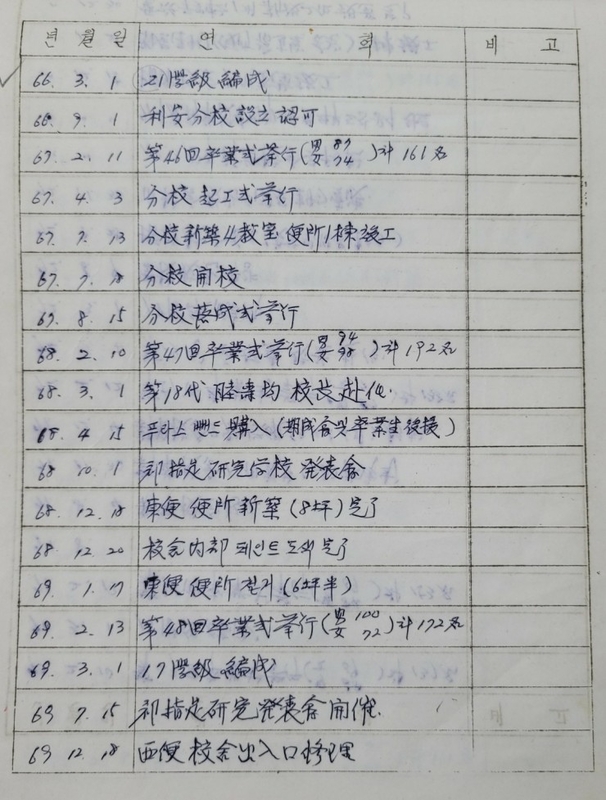 년 월 일 연 혁 비 고
66. 3. 1 21學級 編成
66. 9. 1 利安分校 設立 認可
67. 2. 11 第46回 卒業式 挙行(男 87 女 74)計 161名
67. 4. 3 分校 起工式 挙行
67. 7. 13 分校 新築 4教室 便所 1棟 竣工
67. 7. 18 分校 開校
67. 8. 15 分校 落成式 挙行
68. 2. 10 第47回 卒業式 挙行(男 94 女 98)計 192名
68. 3. 1 第18代 均 校長 赴任.
68. 4. 15 부라스 밴드 購入 (期成會및 卒業生 後援)
68 10. 1 郡指定 研究学校 発表會
68. 12. 18 東便 便所 新築 (8坪) 완了
68. 12 20 校舍 内部 페인트 도색 완了
69. 1. 17 東便 便所 철거 (6坪半)
69. 2. 13 第48回 卒業式 挙行(男 100 女 72)計 172名
69. 3. 1 17學級 編成
69 7. 15 郡指定 研究 発表會 開催.
69 12. 18 西便 校舍 出入口 修理